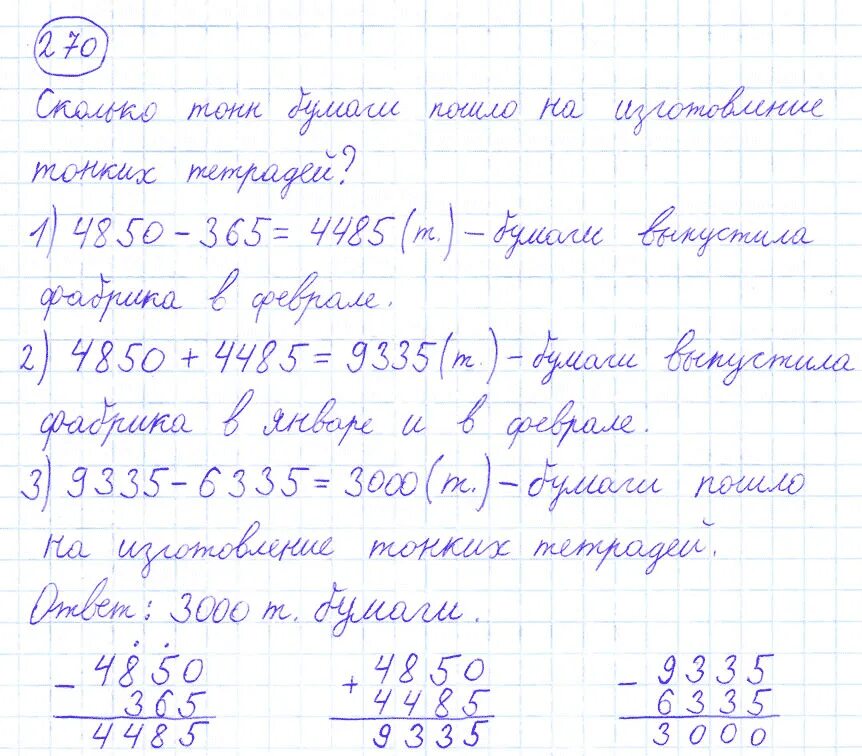 270
Сколько тонн бумаги пошло на изготовление
тонких тетрадей?
1) 4850 - 365 = 4485 (т.) - бумаги выпустила
фабрика в феврале.
2) 4850 + 4485 = 9335 (т.) - бумаги выпустила
фабрика в январе и в феврале.
3) 9335 - 6335 = 3000 (т.) - бумаги пошло
на изготовление тонких тетрадей.
Ответ: 3000 т. бумаги.
- 4850 + 4850 - 9335
365 4485 6335
4485 9335 3000